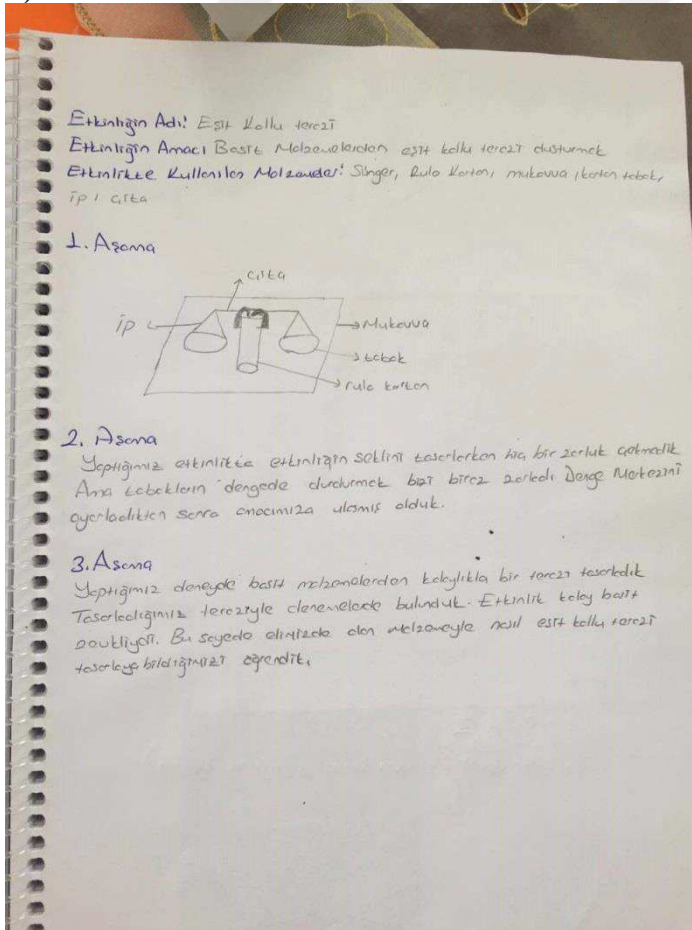 Etkinliğin Adı: Eşit Kollu terazi
Etkinliğin Amacı Basit Malzemelerden eşit kollu terazi oluşturmak
Etkinlikte Kullanılan Malzemeler: Sünger, Rulo Karton, mukavva, karton tabak,
ip, çıta
1. Aşama
çıta
ip
Mukavva
tabak
rulo karton
2. Aşama
Yaptığımız etkinlikte etkinliğin şeklini tasarlarken hiç bir zorluk çekmedik
Ama tabakların dengede durdurmak bizi biraz zorladı Denge Merkezini
ayarladıktan sonra amacımıza ulaşmış olduk.
3. Aşama
Yaptığımız deneyde basit malzemelerden kolaylıkla bir terazi tasarladık
Tasarladığımız teraziyle denemelerde bulunduk. Etkinlik kolay basit
zevkliydi. Bu sayede elimizde olan malzemeyle nasıl eşit kollu terazi
tasarlaya bildiğimizi öğrendik.